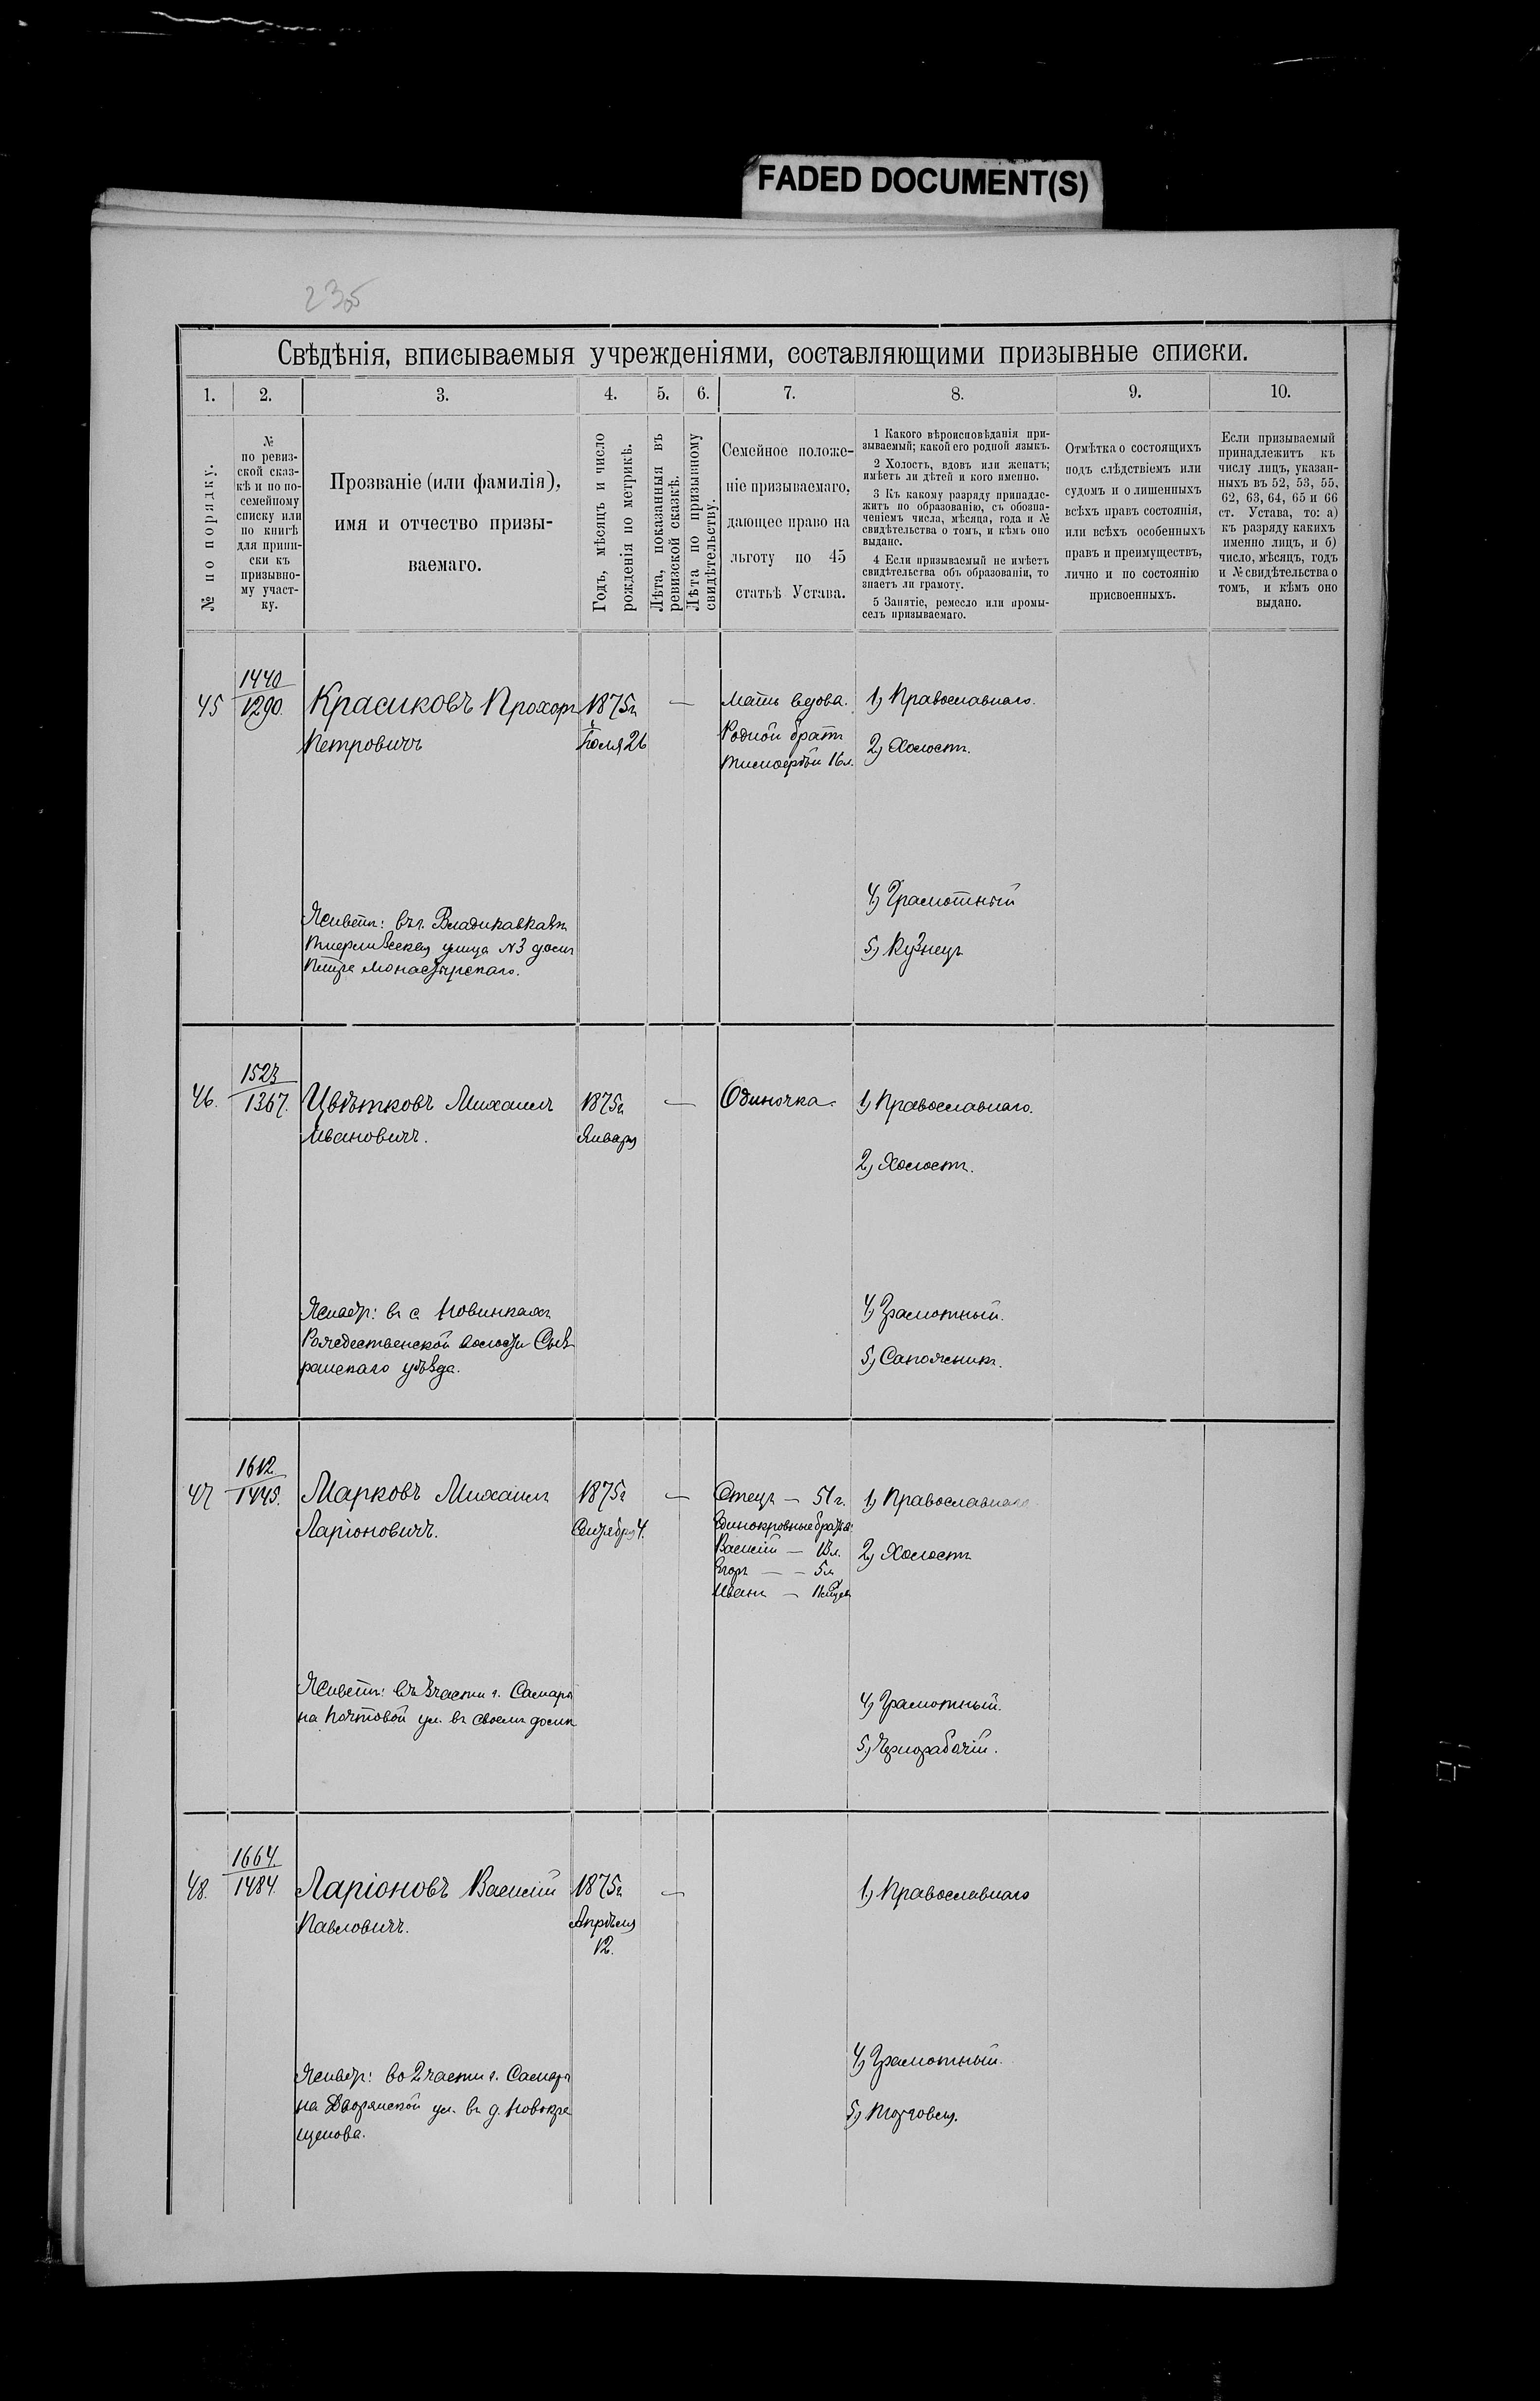 FADED DOCUMENT(S)
235
Свѣдѣнія, вписываемыя учрежденіями, составляющими призывные списки.
1. 2. 3. 4. 5. 6. 7. 8. 9. 10.
№ по порядку.
№
по ревиз-
ской сказ-
кѣ и по по-
семейному
списку или
по книгѣ
для припи-
ски къ
призывно-
му участ-
ку.
Прозваніе (или фамилія),
имя и отчество призы-
ваемаго.
Годъ, мѣсяцъ и число
рожденія по метрикѣ.
Лѣта, показанныя въ
ревизской сказкѣ.
Лѣта по призывному
свидѣтельству.
Семейное положе-
ніе призываемаго,
дающее право на
льготу по 45
статьѣ Устава.
1 Какого вѣроисповѣданія при-
зываемый; какой его родной языкъ.
2 Холостъ, вдовъ или женатъ;
имѣетъ ли дѣтей и кого именно.
3 Къ какому разряду принадле-
житъ по образованію, съ обозна-
ченіемъ числа, мѣсяца, года и №
свидѣтельства о томъ, и кѣмъ оно
выдано.
4 Если призываемый не имѣетъ
свидѣтельства объ образованіи, то
знаетъ ли грамоту.
5 Занятіе, ремесло или промы-
селъ призываемаго.
Отмѣтка о состоящихъ
подъ слѣдствіемъ или
судомъ и о лишенныхъ
всѣхъ правъ состоянія,
или всѣхъ особенныхъ
правъ и преимуществъ,
лично и по состоянію
присвоенныхъ.
Если призываемый
принадлежитъ къ
числу лицъ, указан-
ныхъ въ 52, 53, 55,
62, 63, 64, 65 и 66
ст. Устава, то: а)
къ разряду какихъ
именно лицъ, и б)
число, мѣсяцъ, годъ
и № свидѣтельства о
томъ, и кѣмъ оно
выдано.
45
1440
1290.
Красиковъ Прохоръ
Петровичъ
1875г.
Іюля 26
—
Мать вдова.
Родной братъ
Тимофѣй 16л.
1) Православнаго.
2) Холостъ.
4) Грамотный
5) Кузнецъ
Живетъ: въ г. Владикавказѣ
улица №3 домъ
Петра Монастырскаго.
46.
1523
1367.
Цвѣтковъ Михаилъ
Ивановичъ.
1875г.
Января
—
Одиночка.
1) Православнаго.
2) Холостъ.
4) Грамотный.
5) Сапожникъ.
Жив. въ с. Новинкахъ
Рождественской волости Сыз
ранскаго уѣзда.
47
1612
1445.
Марковъ Михаилъ
Ларіоновичъ.
1875г
Сентября 4.
—
Отецъ — 51 г.
Единокровные братья:
Василій — 13л.
Егоръ — — 5л.
Иванъ —
1) Православнаго
2) Холостъ
4) Грамотный.
5) Чернорабочій.
Живетъ: въ 3 части г. Самары
на Почтовой ул. въ своемъ домѣ
48.
1664.
1484.
Ларіоновъ Василій
Павловичъ.
1875г.
Апрѣля
12.
—
1) Православнаго
4) Грамотный.
5) Торговля.
Живетъ: во 2 части г. Самары
на Дворянской ул. въ д. Новокре
щенова.